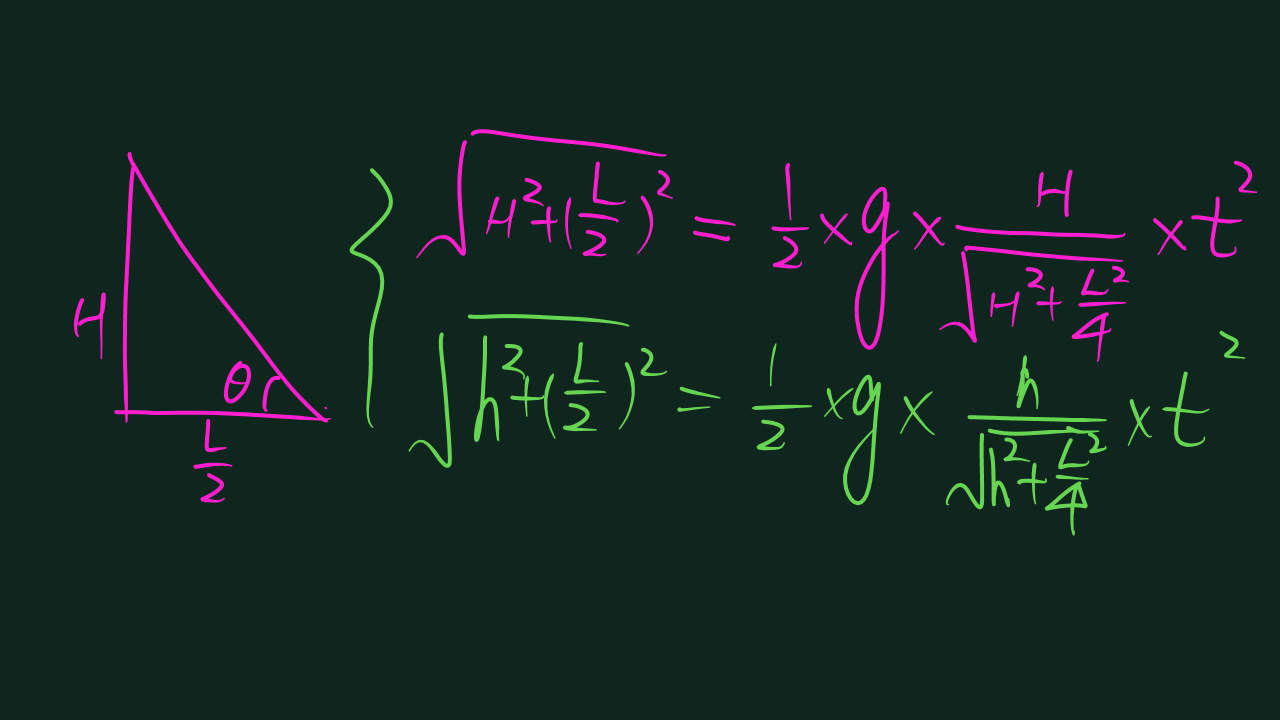 √(H²+(L/2)²) = 1/2 × g × H/√(H²+L²/4) × t²
√(h²+(L/2)²) = 1/2 × g × h/√(h²+L²/4) × t²
H
θ
L/2